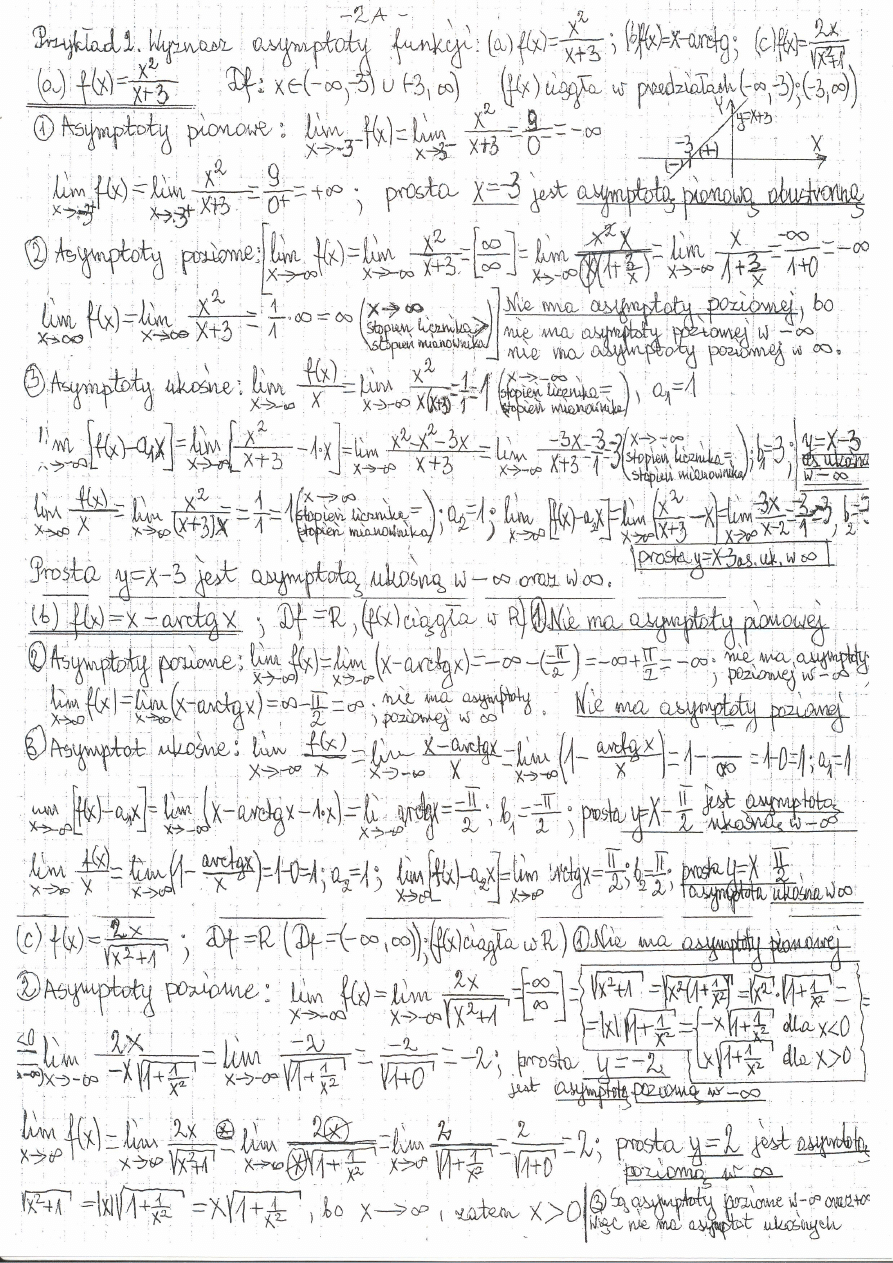 -2A-
Przykład 2. Wyznasz asymptoty funkcji: (a) f(x)=x²/(x+3); (b) f(x)=x-arctg; (c) f(x)=2x/√(x²+1)
(a) f(x)=x²/(x+3) Df: x∈(-∞,-3)∪(-3,∞) (f(x) ciągła w przedziałach (-∞,-3);(-3,∞))
① Asymptoty pionowe: lim x→-3⁻ f(x)=lim x→-3⁻ x²/(x+3)=9/0⁻=-∞
Y y=x+3 -3 (-) (+) X
lim x→-3⁺ f(x)=lim x→-3⁺ x²/(x+3)=9/0⁺=+∞; prosta x=-3 jest asymptotą pionową obustronną
② Asymptoty poziome: [lim x→-∞ f(x)=lim x→-∞ x²/(x+3)=[∞/∞]=lim x→-∞ x²x/(x(1+3/x))=lim x→-∞ x/(1+3/x)=-∞/(1+0)=-∞
lim x→∞ f(x)=lim x→∞ x²/(x+3)=1/1·∞=∞ (x→∞ stopień licznika> stopień mianownika)] Nie ma asymptoty poziomej, bo
nie ma asymptoty poziomej w -∞
nie ma asymptoty poziomej w ∞.
③ Asymptoty ukośne: lim x→-∞ f(x)/x=lim x→-∞ x²/(x(x+3))=1/1=1 (x→-∞ stopień licznika= stopień mianownika), a₁=1
lim x→-∞ [f(x)-a₁x]=lim x→-∞ [x²/(x+3)-1·x]=lim x→-∞ (x²-x²-3x)/(x+3)=lim x→-∞ -3x/(x+3)=-3/1=-3 (x→-∞ stopień licznika= stopień mianownika); b₁=3; y=x-3 as ukośna w -∞
lim x→∞ f(x)/x=lim x→∞ x²/((x+3)x)=1/1=1 (x→∞ stopień licznika= stopień mianownika); a₂=1; lim x→∞ [f(x)-a₂x]=lim x→∞ (x²/(x+3)-x)=lim x→∞ -3x/(x-2)=-3/1=-3, b₂=-3
prosta y=x-3 as. uk. w ∞
Prosta y=x-3 jest asymptotą ukośną w -∞ oraz w ∞.
(b) f(x)=x-arctg x; Df=R, (f(x) ciągła w R) ① Nie ma asymptoty pionowej
② Asymptoty poziome; lim x→-∞ f(x)=lim x→-∞ (x-arctgx)=-∞-(-π/2)=-∞+π/2=-∞; nie ma asymptoty poziomej w -∞;
lim x→∞ f(x)=lim x→∞ (x-arctgx)=∞-π/2=∞; nie ma asymptoty poziomej w ∞. Nie ma asymptoty poziomej
③ Asymptot ukośne: lim x→-∞ f(x)/x=lim x→-∞ (x-arctgx)/x=lim x→-∞ (1-arctgx/x)=1- /∞=1-0=1; a₁=1
lim x→-∞ [f(x)-a₁x]=lim x→-∞ (x-arctgx-1·x)=li x→-∞ arctgx=-π/2; b₁=-π/2; prosta y=x-π/2 jest asymptotą ukośną w -∞
lim x→∞ f(x)/x=lim x→∞ (1-arctgx/x)=1-0=1; a₂=1; lim x→∞ [f(x)-a₂x]=lim x→∞ arctgx=π/2; b₂=π/2; prosta y=x π/2 asymptota ukośna w ∞
(c) f(x)=2x/√(x²+1); Df=R (Df=(-∞,∞)); (f(x) ciągła w R) ① Nie ma asymptoty pionowej
② Asymptoty poziome: lim x→-∞ f(x)=lim x→-∞ 2x/√(x²+1)=[-∞/∞]= {√(x²+1)=√(x²(1+1/x²))=√x²·√(1+1/x²)=
=|x|√(1+1/x²)={-x√(1+1/x²) dla x<0
x√(1+1/x²) dla x>0} =
<0 = lim x→-∞ 2x/(-x√(1+1/x²))=lim x→-∞ -2/√(1+1/x²)=-2/√(1+0)=-2; prosta y=-2
jest asymptotą poziomą w -∞
lim x→∞ f(x)=lim x→∞ 2x/√(x²+1) (*)= lim x→∞ 2x/(x√(1+1/x²))=lim x→∞ 2/√(1+1/x²)=2/√(1+0)=2; prosta y=2 jest asymptotą
poziomą w ∞
√(x²+1)=|x|√(1+1/x²)=x√(1+1/x²), bo x→∞, zatem x>0
③ Są asymptoty poziome w -∞ oraz +∞
więc nie ma asymptot ukośnych